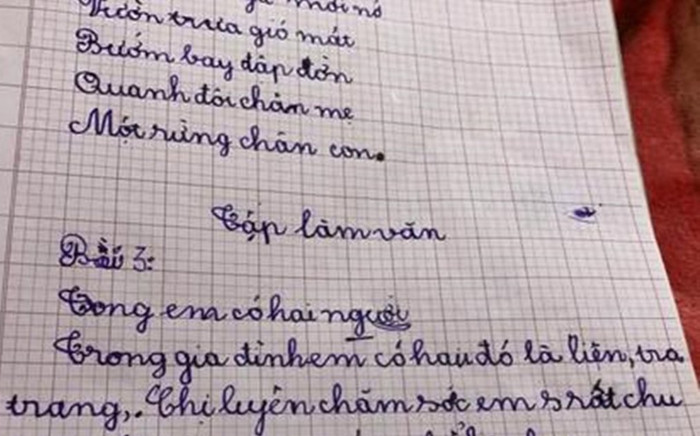 mới nở
Vườn trưa gió mát
Bướm bay dập đờn
Quanh đôi chân mẹ
Một rừng chân con.
Tập làm văn
Bài 3:
Trong em có hai người
Trong gia đình em có hai đó là liên, tra
trang,. Chị luyên chăm sóc em s rất chu